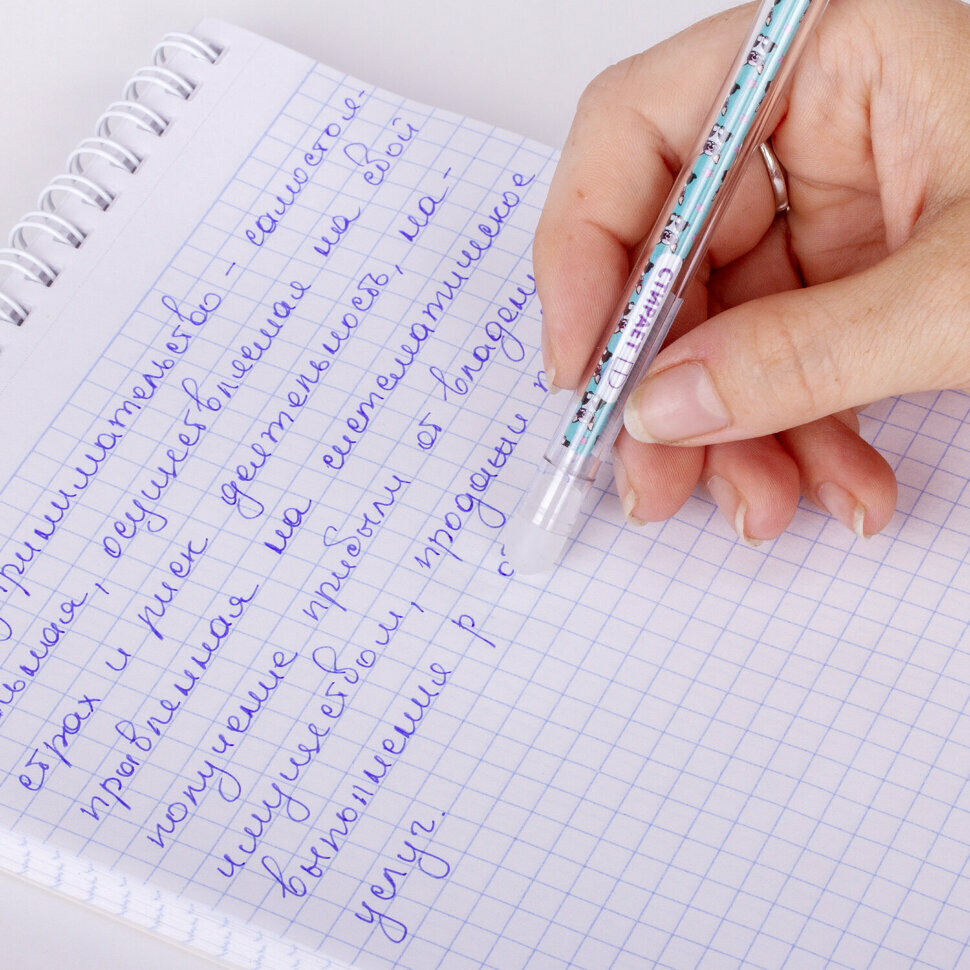 примимательство - самостоя-
льная, осуществляемая на свой
страх и риск деятельность, на-
правленная на систематическое
получение прибыли от владени
имуществом, продажи
выполнения р
услуг.
СТИРАЕТ